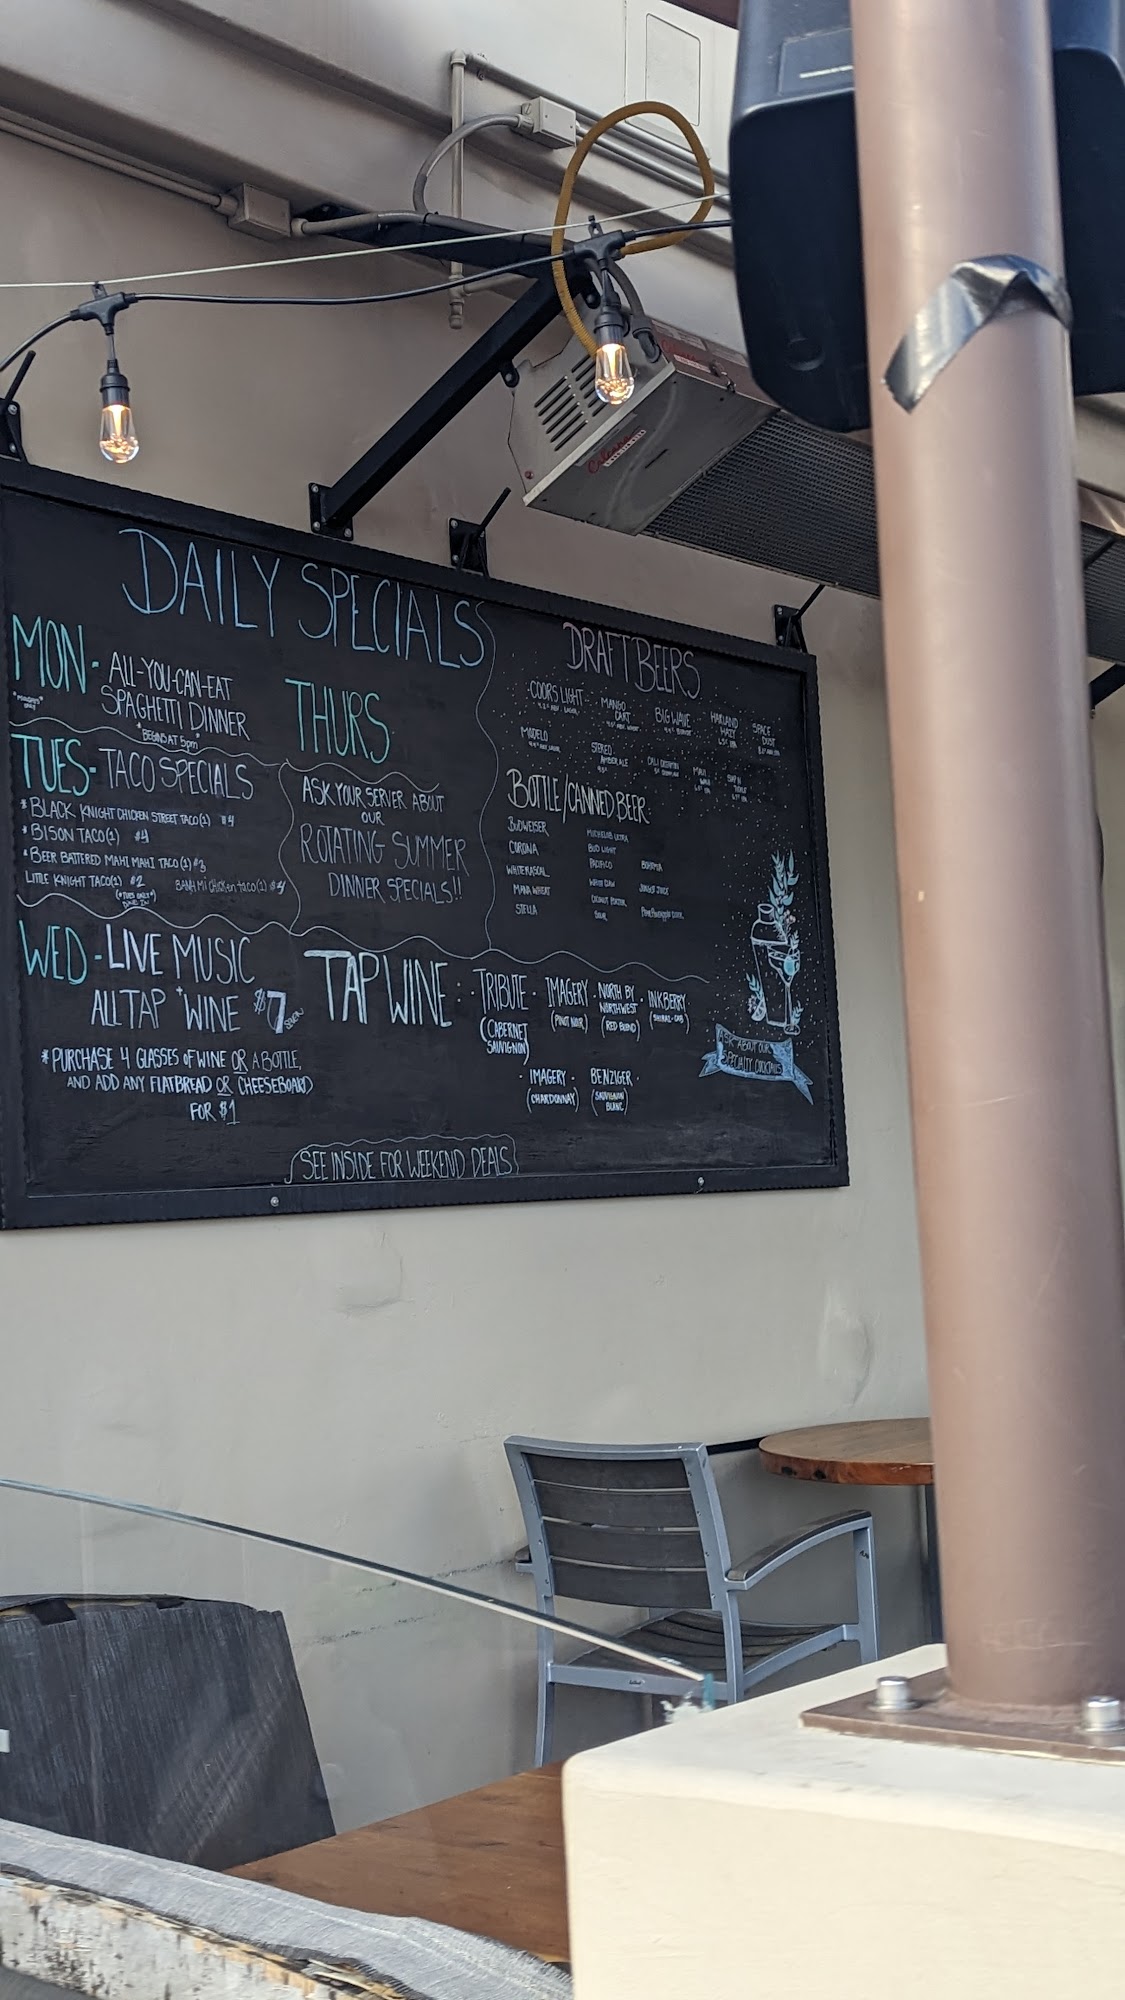 DAILY SPECIALS
MON - ALL-YOU-CAN-EAT
SPAGHETTI DINNER
*BEGINS AT 5pm*
TUES - TACO SPECIALS
* BLACK KNIGHT CHICKEN STREET TACO(1) $4
* BISON TACO(1) $4
* BEER BATTERED MAHI MAHI TACO(1) $3
LITTLE KNIGHT TACO(1) $2 BANH MI CHICKEN TACO(1) $4
WED - LIVE MUSIC
ALL TAP WINE $7
* PURCHASE 4 GLASSES OF WINE OR A BOTTLE,
AND ADD ANY FLATBREAD OR CHEESEBOARD
FOR $1
THURS
ASK YOUR SERVER ABOUT
OUR
ROTATING SUMMER
DINNER SPECIALS!!
DRAFT BEERS
COORS LIGHT
MANGO
CART
BIG WAVE
HARLAND
HAZY
SPACE
DUST
MODELO
STEREO
AMBER ALE
BOTTLE/CANNED BEER
BUDWEISER
CORONA
WHITE RASCAL
MANA WHEAT
STELLA
MICHELOB ULTRA
BUD LIGHT
PACIFICO
WHITE CLAW
COCONUT PORTER
BOHEMIA
JUNGLE JUICE
TAP WINE: TRIBUTE
(CABERNET
SAUVIGNON)
IMAGERY
(PINOT NOIR)
NORTH BY
NORTHWEST
(RED BLEND)
INKBERRY
(SHIRAZ-CAB)
IMAGERY
(CHARDONNAY)
BENZIGER
(SAUVIGNON
BLANC)
ASK ABOUT OUR
SPECIALTY COCKTAILS
SEE INSIDE FOR WEEKEND DEALS